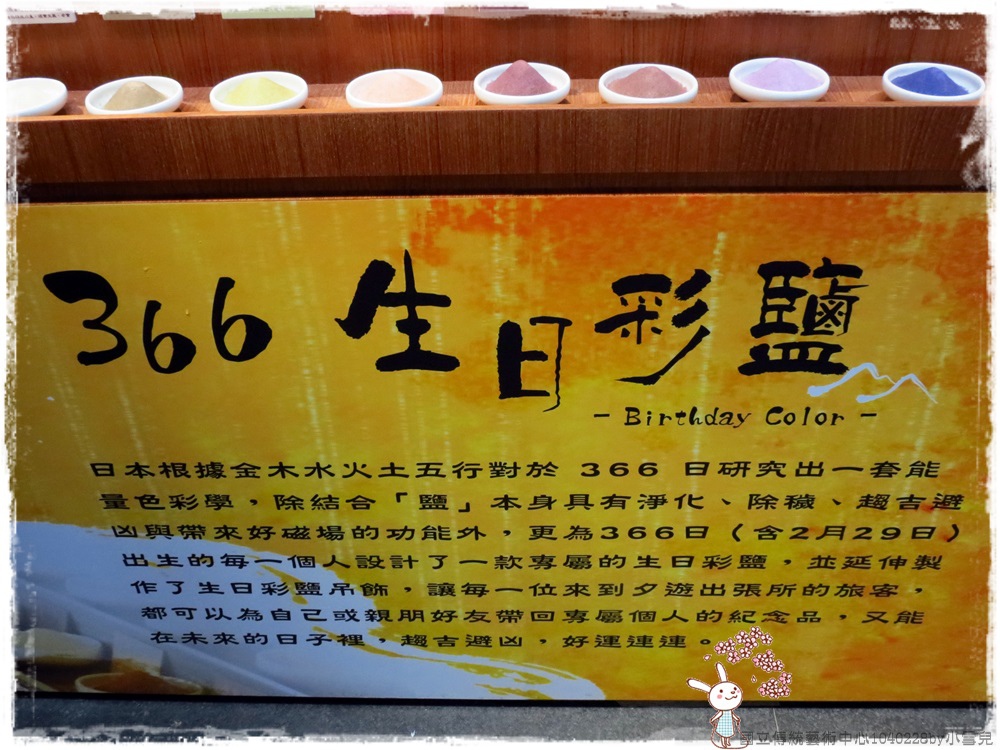 366 生日彩鹽
- Birthday Color -
日本根據金木水火土五行對於 366 日研究出一套能
量色彩學，除結合「鹽」本身具有淨化、除穢、趨吉避
凶與帶來好磁場的功能外，更為366日（含2月29日）
出生的每一個人設計了一款專屬的生日彩鹽，並延伸製
作了生日彩鹽吊飾，讓每一位來到夕遊出張所的旅客，
都可以為自己或親朋好友帶回專屬個人的紀念品，又能
在未來的日子裡，趨吉避凶，好運連連。
國立傳統藝術中心1040228by小雪兒